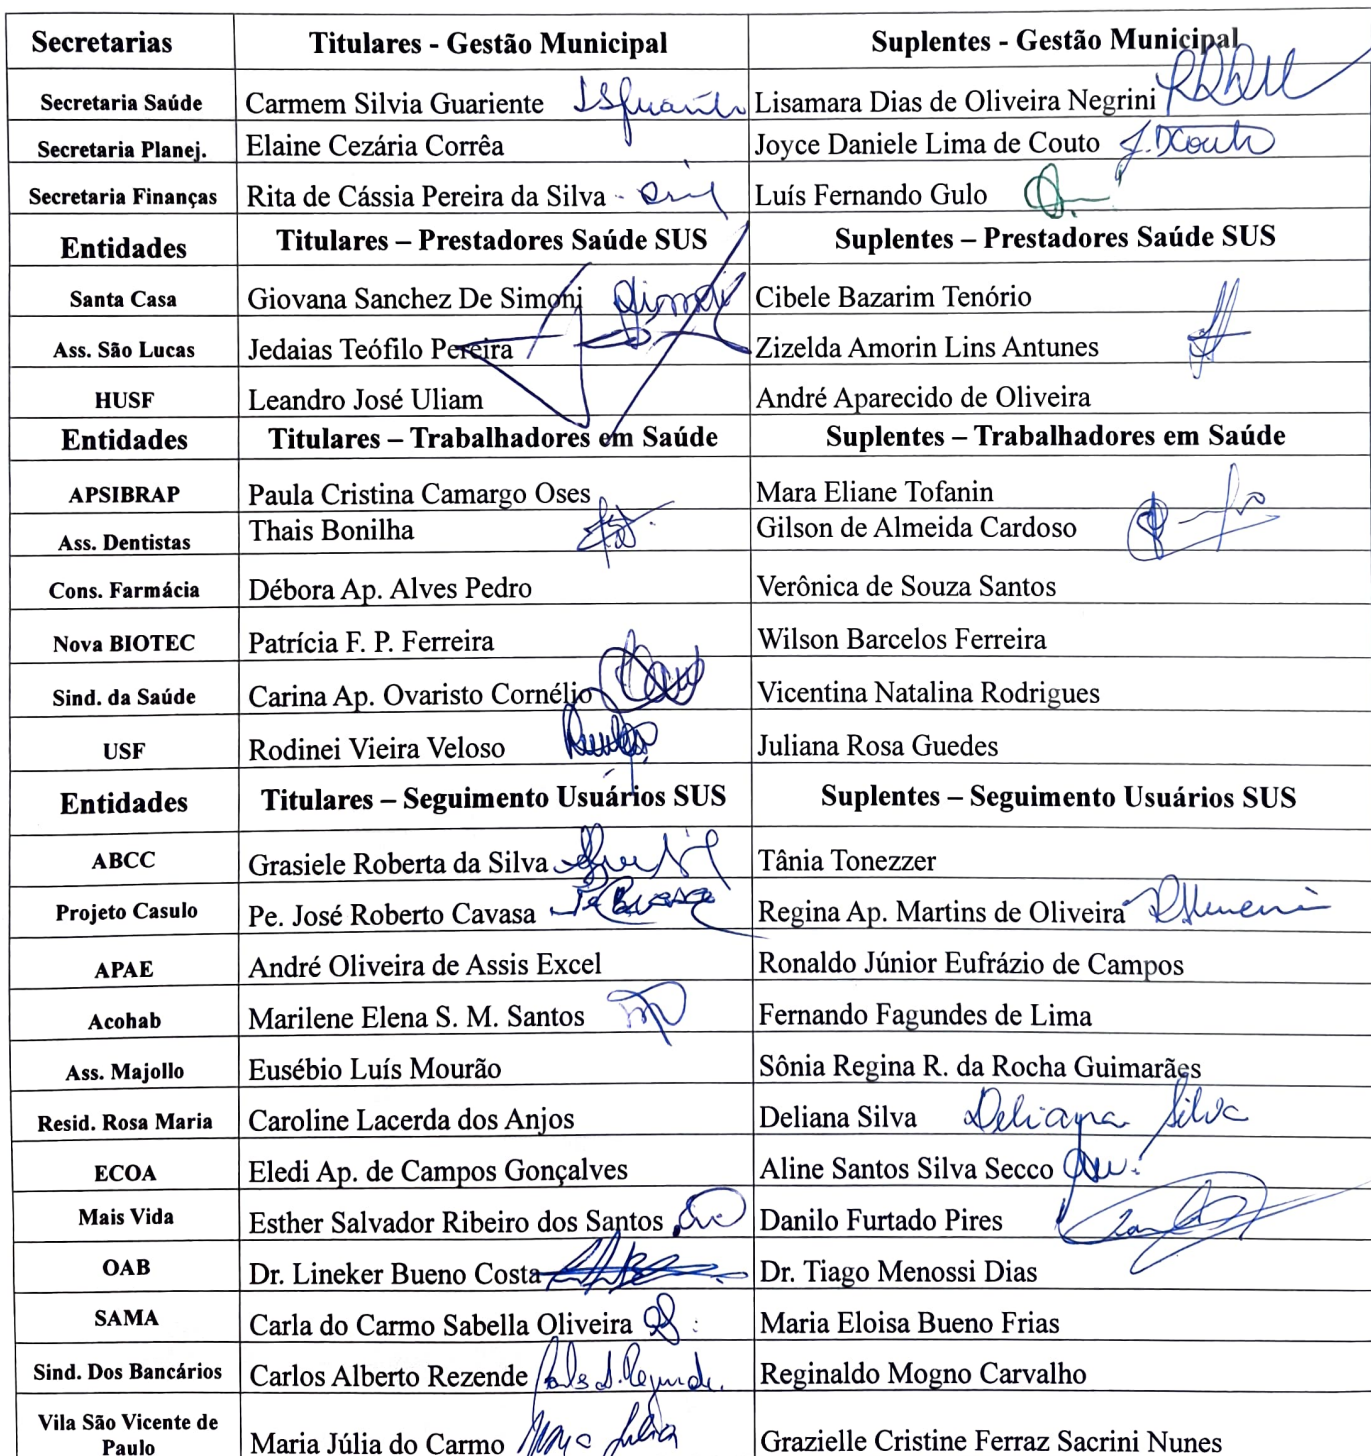 Secretarias Titulares - Gestão Municipal Suplentes - Gestão Municipal
Secretaria Saúde Carmem Silvia Guariente Lisamara Dias de Oliveira Negrini
Secretaria Planej. Elaine Cezária Corrêa Joyce Daniele Lima de Couto J. DCouto
Secretaria Finanças Rita de Cássia Pereira da Silva Luís Fernando Gulo
Entidades Titulares – Prestadores Saúde SUS Suplentes – Prestadores Saúde SUS
Santa Casa Giovana Sanchez De Simoni Cibele Bazarim Tenório
Ass. São Lucas Jedaias Teófilo Pereira Zizelda Amorin Lins Antunes
HUSF Leandro José Uliam André Aparecido de Oliveira
Entidades Titulares – Trabalhadores em Saúde Suplentes – Trabalhadores em Saúde
APSIBRAP Paula Cristina Camargo Oses Mara Eliane Tofanin
Ass. Dentistas Thais Bonilha Gilson de Almeida Cardoso
Cons. Farmácia Débora Ap. Alves Pedro Verônica de Souza Santos
Nova BIOTEC Patrícia F. P. Ferreira Wilson Barcelos Ferreira
Sind. da Saúde Carina Ap. Ovaristo Cornélio Vicentina Natalina Rodrigues
USF Rodinei Vieira Veloso Juliana Rosa Guedes
Entidades Titulares – Seguimento Usuários SUS Suplentes – Seguimento Usuários SUS
ABCC Grasiele Roberta da Silva Tânia Tonezzer
Projeto Casulo Pe. José Roberto Cavasa Regina Ap. Martins de Oliveira
APAE André Oliveira de Assis Excel Ronaldo Júnior Eufrázio de Campos
Acohab Marilene Elena S. M. Santos Fernando Fagundes de Lima
Ass. Majollo Eusébio Luís Mourão Sônia Regina R. da Rocha Guimarães
Resid. Rosa Maria Caroline Lacerda dos Anjos Deliana Silva Deliana Silva
ECOA Eledi Ap. de Campos Gonçalves Aline Santos Silva Secco
Mais Vida Esther Salvador Ribeiro dos Santos Danilo Furtado Pires
OAB Dr. Lineker Bueno Costa Dr. Tiago Menossi Dias
SAMA Carla do Carmo Sabella Oliveira Maria Eloisa Bueno Frias
Sind. Dos Bancários Carlos Alberto Rezende Reginaldo Mogno Carvalho
Vila São Vicente de
Paulo Maria Júlia do Carmo Grazielle Cristine Ferraz Sacrini Nunes